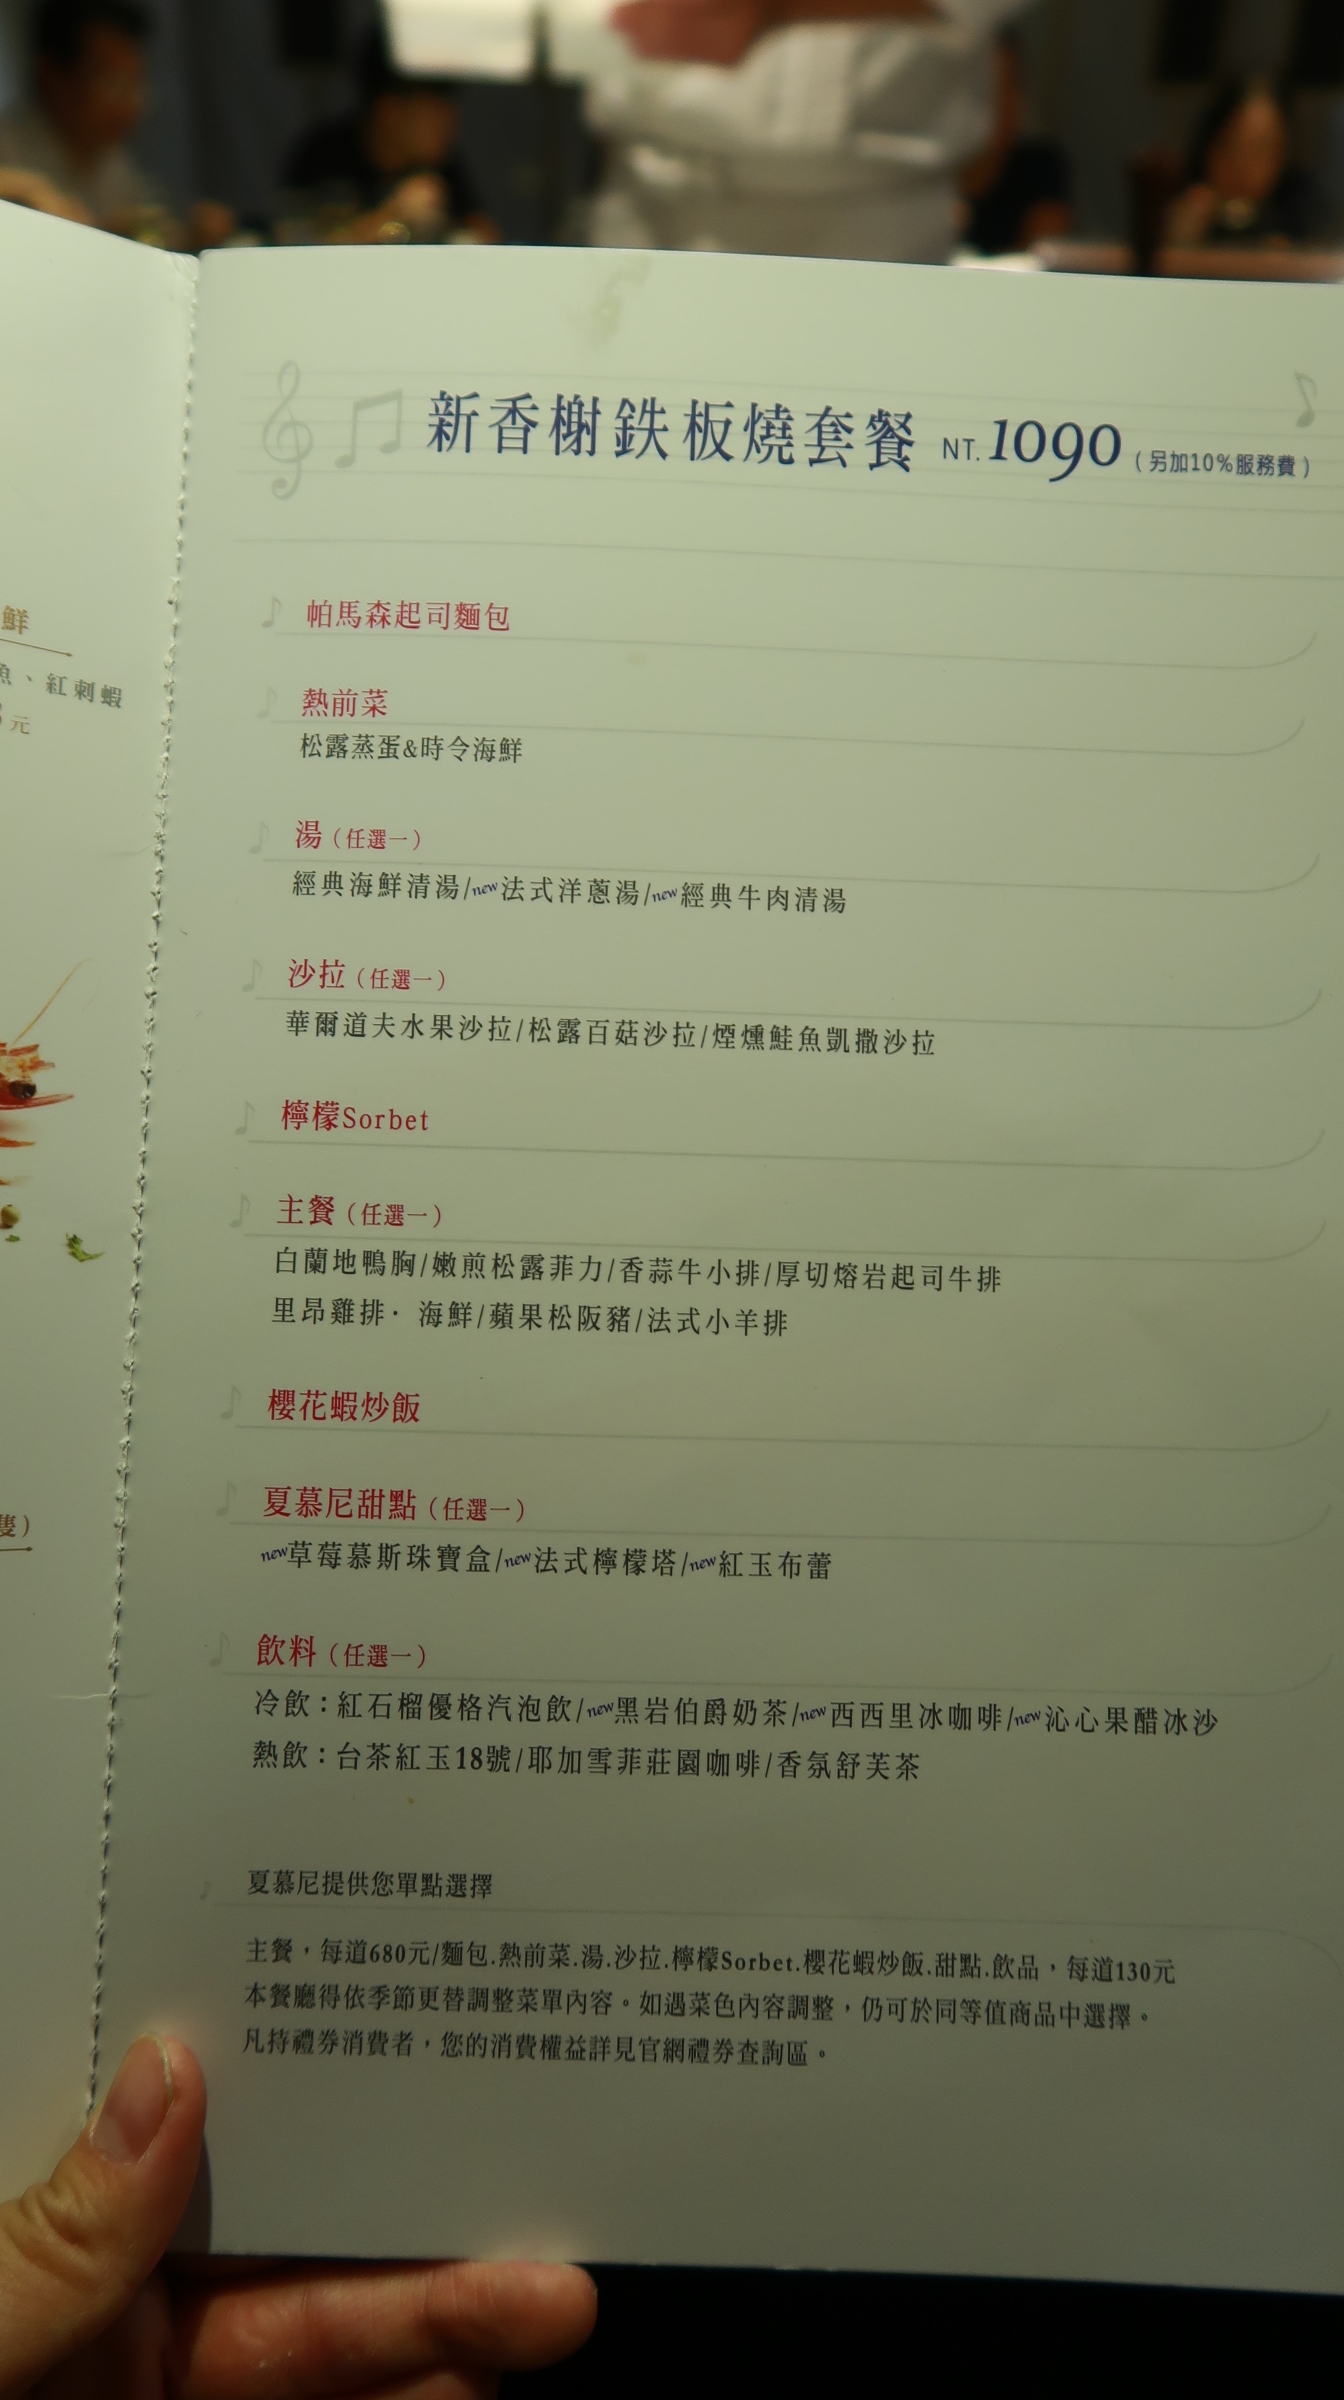 鮮
魚、紅刺蝦
元
隻）
新香榭鉄板燒套餐 NT.1090（另加10%服務費）
帕馬森起司麵包
熱前菜
松露蒸蛋&時令海鮮
湯（任選一）
經典海鮮清湯/new法式洋蔥湯/new經典牛肉清湯
沙拉（任選一）
華爾道夫水果沙拉/松露百菇沙拉/煙燻鮭魚凱撒沙拉
檸檬Sorbet
主餐（任選一）
白蘭地鴨胸/嫩煎松露菲力/香蒜牛小排/厚切熔岩起司牛排
里昂雞排· 海鮮/蘋果松阪豬/法式小羊排
櫻花蝦炒飯
夏慕尼甜點（任選一）
new草莓慕斯珠寶盒/new法式檸檬塔/new紅玉布蕾
飲料（任選一）
冷飲：紅石榴優格汽泡飲/new黑岩伯爵奶茶/new西西里冰咖啡/new沁心果醋冰沙
熱飲：台茶紅玉18號/耶加雪菲莊園咖啡/香氛舒芙茶
夏慕尼提供您單點選擇
主餐，每道680元/麵包.熱前菜.湯.沙拉.檸檬Sorbet.櫻花蝦炒飯.甜點.飲品，每道130元
本餐廳得依季節更替調整菜單內容。如遇菜色內容調整，仍可於同等值商品中選擇。
凡持禮券消費者，您的消費權益詳見官網禮券查詢區。